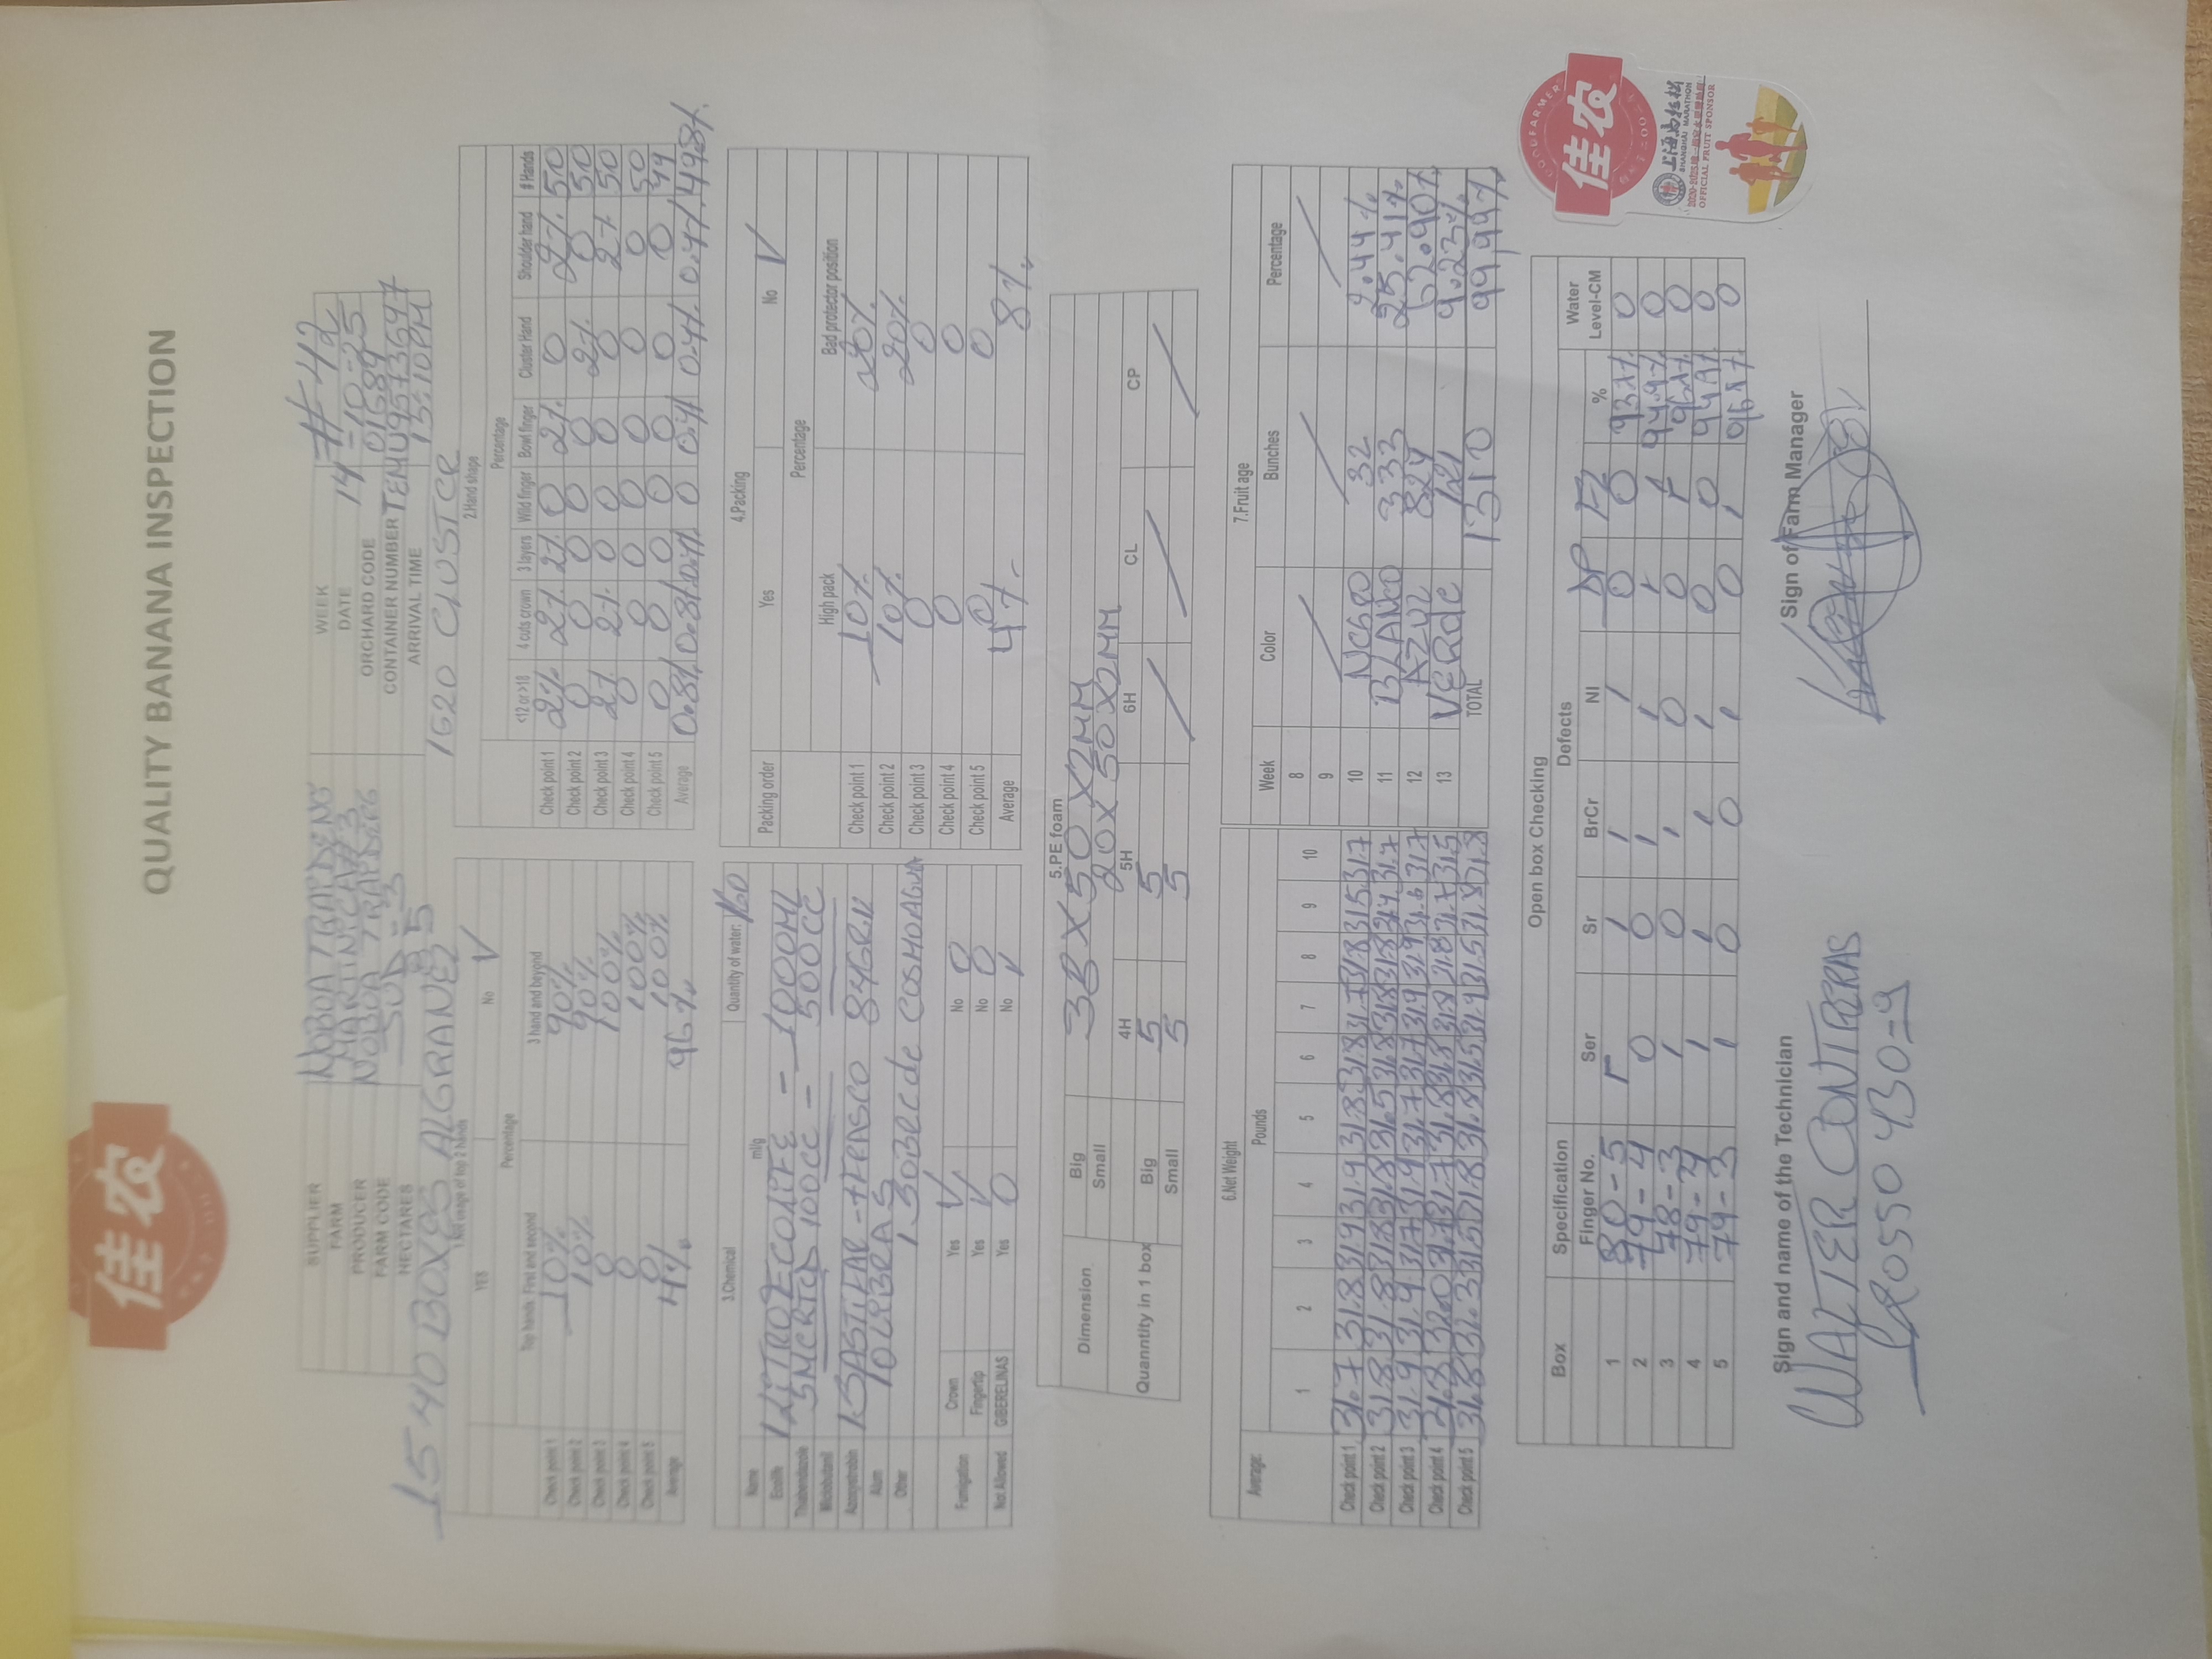 佳农
QUALITY BANANA INSPECTION
SUPPLIER NOBOA TRAPDENG WEEK #42
FARM MARTINICA #3 DATE 14-10-25
PRODUCER NOBOA TRAPDERG ORCHARD CODE 01689
FARM CODE SUD-3 CONTAINER NUMBER TEMU9573697
HECTARES 85 ARRIVAL TIME 13:10PM
1540 BOXES ALGRANEL 1620 CLUSTER
1.Not usage of top 2 hands
YES No √
Percentage
Top hands: First and second 3 hand and beyond
Check point 1 10% 90%
Check point 2 10% 90%
Check point 3 0 100%
Check point 4 0 100%
Check point 5 0 100%
Average 4% 96%
2.Hand shape
Percentage
<12 or >18 4 cuts crown 3 layers Wild finger Bowl finger Cluster Hand Shoulder hand # Hands
Check point 1 2% 2% 2% 0 2% 0 2% 50
Check point 2 0 0 0 0 0 2% 0 50
Check point 3 2% 2% 0 0 0 0 2% 50
Check point 4 0 0 0 0 0 0 0 50
Check point 5 0 0 0 0 0 0 0 49
Average 0.8% 0.8% 0.4% 0 0.4% 0.4% 0.4% 49.8%
3.Chemical Quantity of water: 160
Name ml/g
Ecolife 1 LITRO ECOLIFE - 1000ML
Thiabendazole 5 MERTED 100CC - 500CC
Miclobutanil
Azoxystrobin 1 FRASCO 84GR
Alum 10 LIBRAS
Other 1 SOBRE de COSMOAGUA
Fumigation Crown Yes √ No 0
Fingertip Yes √ No 0
Not Allowed GIBERELINAS Yes 0 No √
4.Packing
Packing order Yes No √
Percentage
High pack Bad protector position
Check point 1 10% 20%
Check point 2 10% 20%
Check point 3 0 0
Check point 4 0 0
Check point 5 0 0
Average 4% 8%
5.PE foam
Dimension Big 38X50X2MM
Small 20X50X2MM
Quanntity in 1 box 4H 5H 6H CL CP
Big 5 5
Small 5 5
6.Net Weight
Average: Pounds
1 2 3 4 5 6 7 8 9 10
Check point 1 31.7 31.8 31.9 31.9 31.8 31.8 31.7 31.8 31.5 31.7
Check point 2 31.8 31.8 31.8 31.8 31.5 31.8 31.8 31.8 31.7
Check point 3 31.9 31.9 31.7 31.9 31.7 31.7 31.9 31.9 31.6 31.7
Check point 4 31.8 32.0 31.7 31.7 31.8 31.8 31.8 31.8 31.7 31.5
Check point 5 31.8 32.3 31.5 31.8 31.8 31.5 31.9 31.5 31.8 31.8
7.Fruit age
Week Color Bunches Percentage
8
9
10 NEGRO 32 2.44%
11 BLANCO 333 25.41%
12 AZUL 824 62.90%
13 VERDE 121 9.23%
TOTAL 1310 99,99%
Open box Checking
Box Specification Defects Water
Finger No. Ser Sr BrCr NI DP FL % Level-CM
1 80-5 1 1 1 0 0 93.7% 0
2 79-4 0 0 1 1 1 1 94.9% 0
3 78-3 1 0 1 0 0 1 96.1% 0
4 79-4 1 1 1 1 0 0 94.9% 0
5 79-3 1 0 0 1 0 1 0
Sign and name of the Technician Sign of Farm Manager
WALTER CONTRERAS
120550430-9
GOODFARMER
佳农
上海马拉松
SHANGHAI MARATHON
OFFICIAL FRUIT SPONSOR